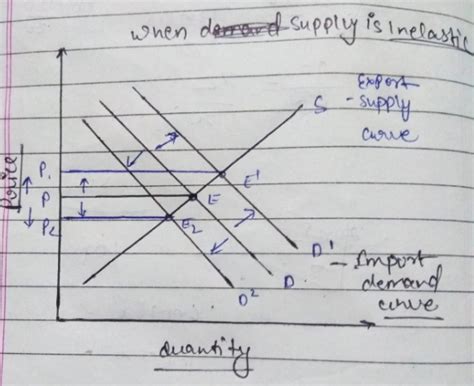 When demand supply is Inelastic
S
Export
- supply
curve
P1
P
P2
Price
E1
E
E2
D1
- Import
demand
curve
D
D2
Quantity